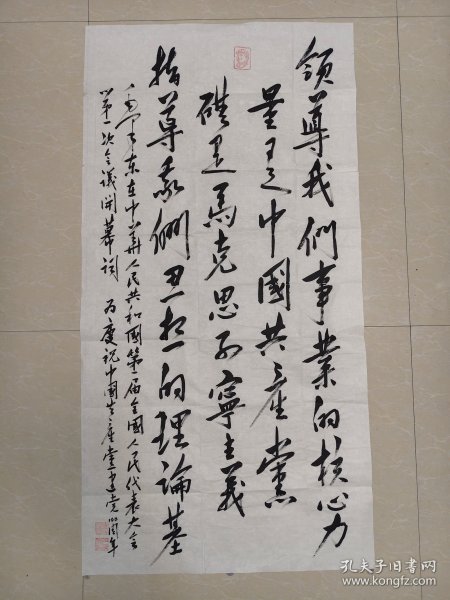 領導我們事業的核心力
量是中國共產黨
礎是馬克思列寧主義
指導我們思想的理論基
毛澤東在中華人民共和國第一届全國人民代表大会
第一次会議開幕詞 为慶祝中國共産党建党100周年
孔夫子旧书网
www.kongfz.com